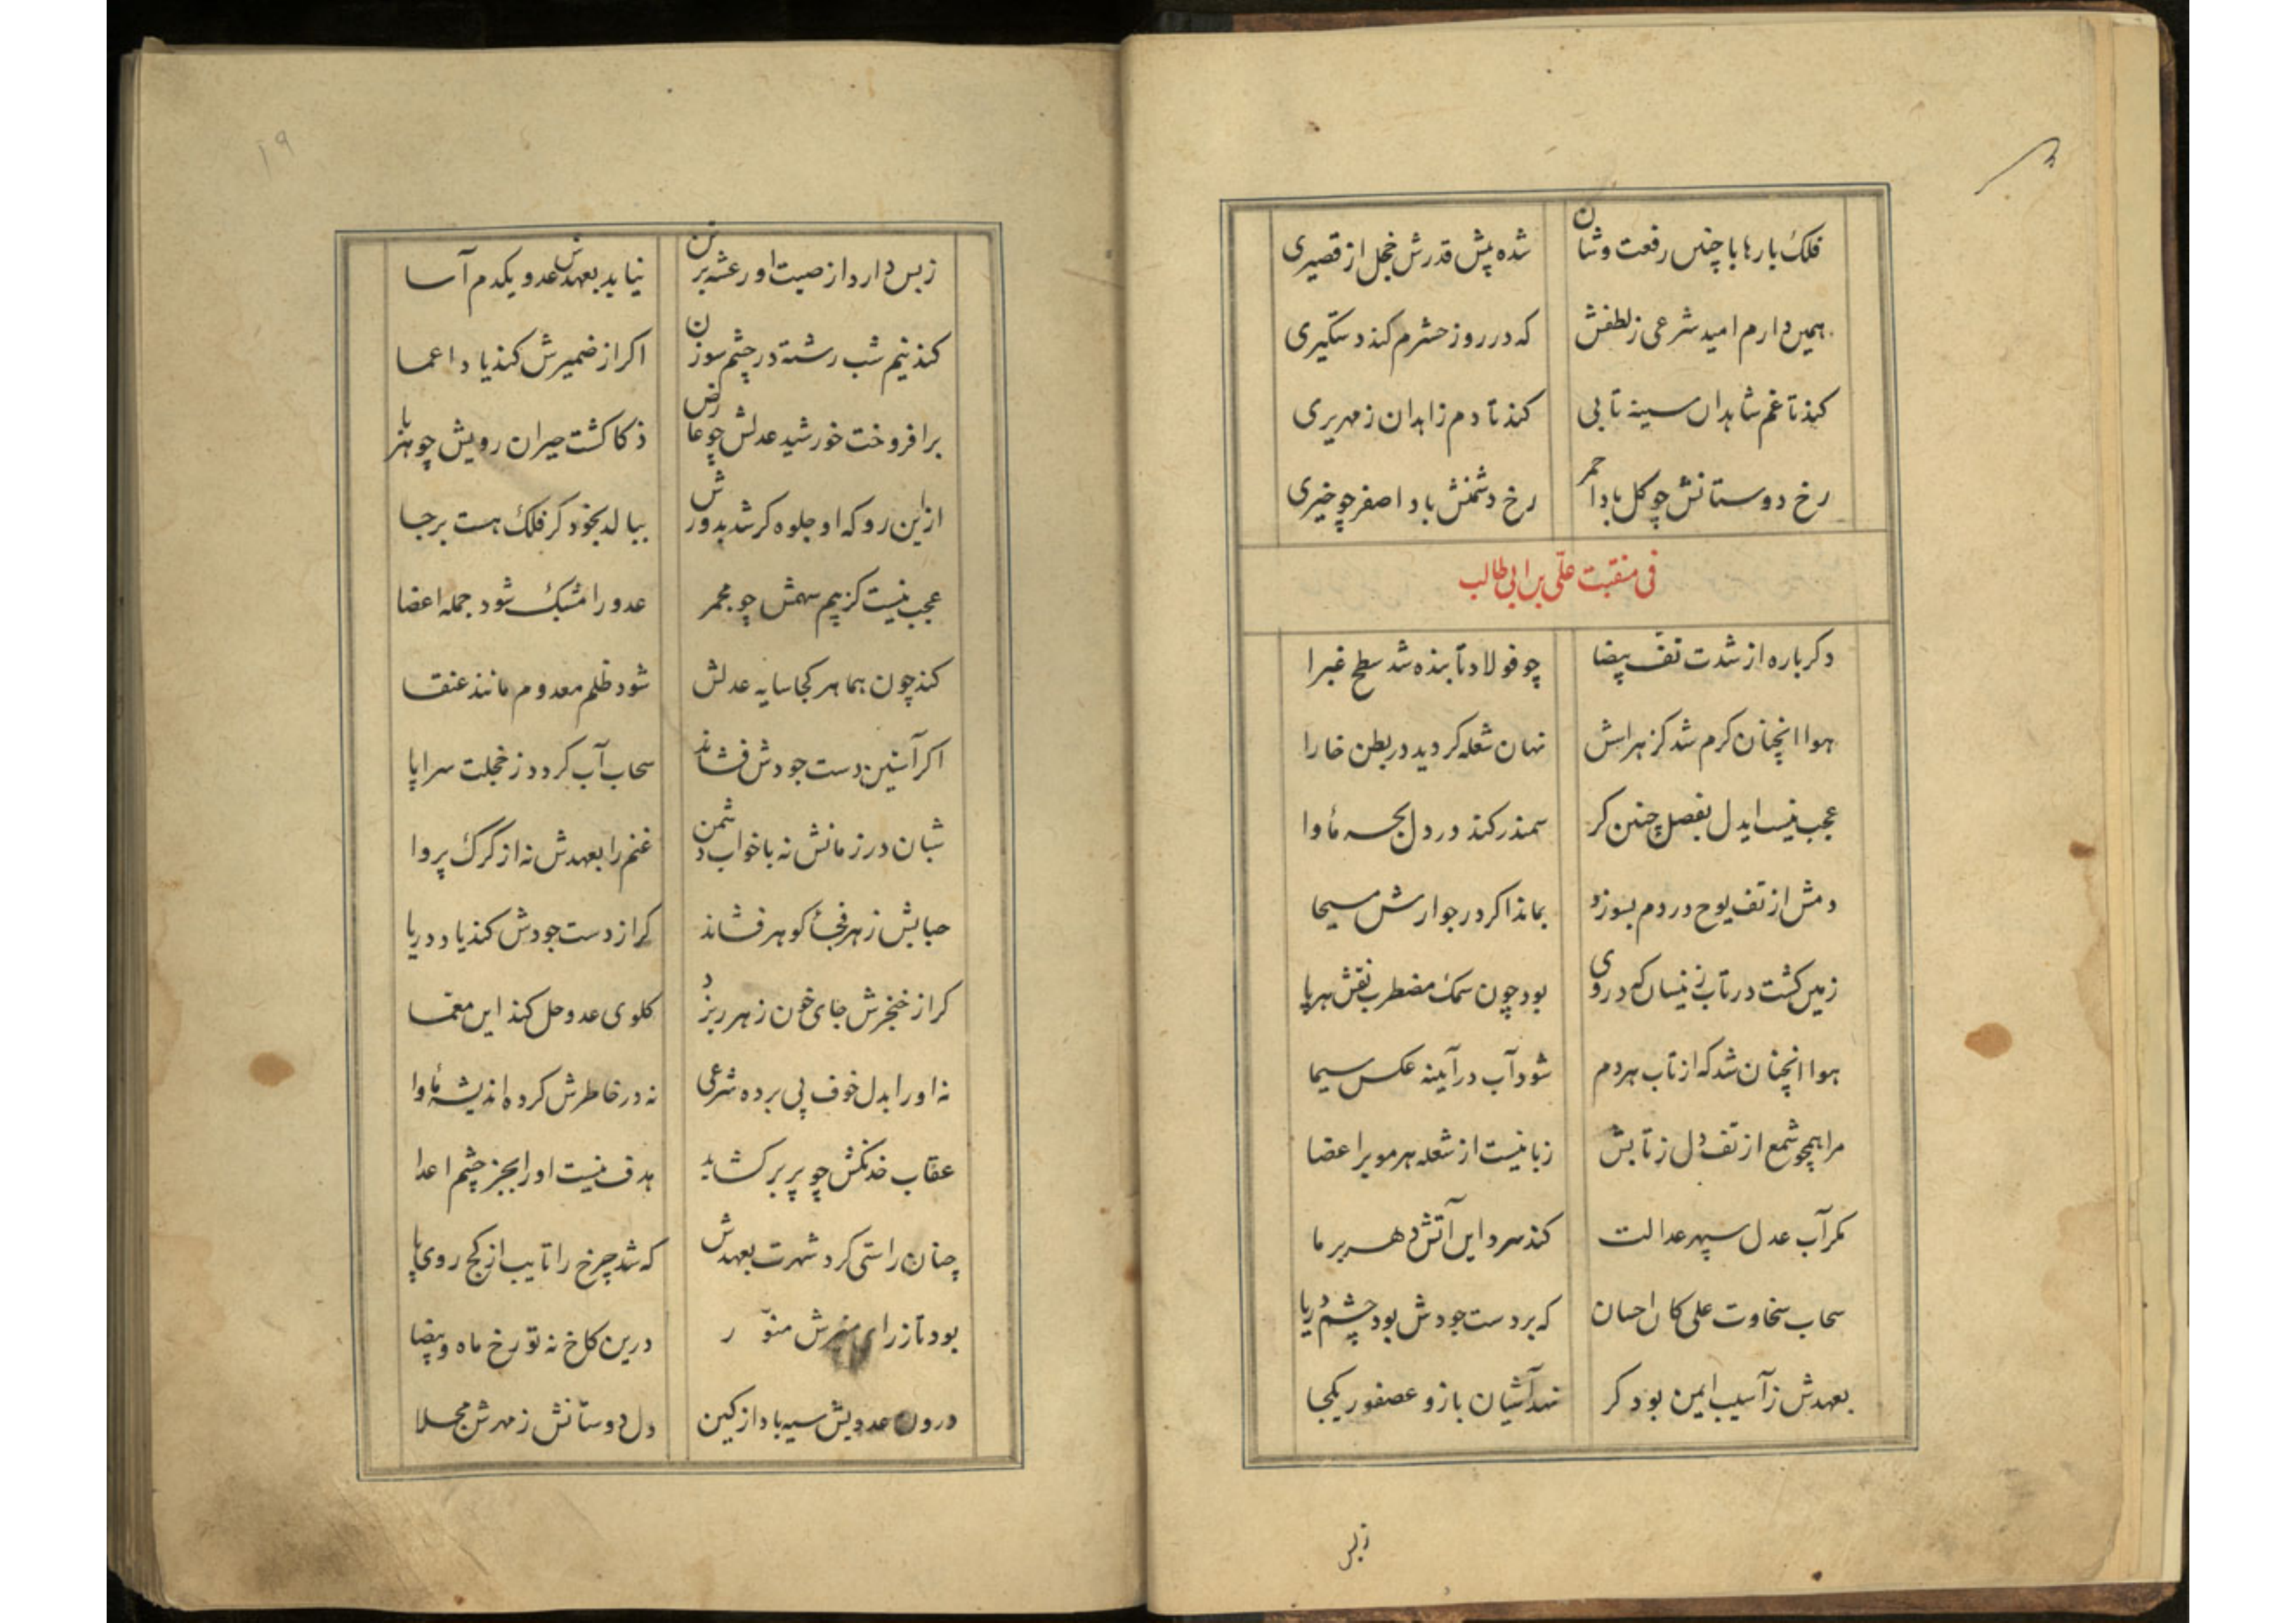 فلک بارها با چنین رفعت و شان شده پیش قدرش خجل از قصیری
همین دارم امید شرعی ز لطفش که در روز حشرم کند دستگیری
کند تا غم شاهدان سینه تابی کند تا دم زاهدان زمهریری
رخ دوستانش چو کل باد احمر رخ دشمنش باد اصفر چو خیری
فی منقبت علی بن ابی طالب
دکرباره از شدت تف بیضا چو فولاد تابنده شد سطح غبرا
هوا انچنان کرم شد کز هراسش نهان شعله کردید در بطن خارا
عجب نیست ایدل بفصل چنین کر سمندر کند در دل بحر ماوا
دمش از تف یوح در دم بسوزد بماند اکر در جوارش مسیحا
زمین کشت در تاب زینسان که در وی بود چون سمک مضطرب نقش هر پا
هوا انچنان شد که از تاب هر دم شود آب در آینه عکس سیما
مرا همچو شمع از تف دل ز تابش زبانیست از شعله هر مو بر اعضا
مکر آب عدل سپهر عدالت کند سرد این آتش دهر بر ما
سحاب سخاوت علی کان احسان که بر دست جودش بود چشم دریا
بعهدش ز آسیب ایمن بود کر نهد آشیان باز و عصفور یکجا
زبس
۱۹
زبس دارد از صیت او رعشه بر تن نیاید بعهدش عدو یکدم آسا
کند نیم شب رشته در چشم سوزن اکر از ضمیرش کند یاد اعما
برافروخت خورشید عدلش چو عارض ذکا کشت حیران رویش چو هربا
ازین رو که او جلوه کر شد بدورش ببالد بخود کر فلک هست برجا
عجب نیست کز بیم سهمش چو مجمر عدو را مشبک شود جمله اعضا
کند چون هما هر کجا سایه عدلش شود ظلم معدوم مانند عنقا
اکر آستین دست جودش فشاند سحاب آب کردد ز خجلت سراپا
شبان در زمانش نه با خواب دشمن غنم را بعهدش نه از کرک پروا
حبابش ز هر فجأ کوهر فشاند کر از دست جودش کند یاد دریا
کر از خنجرش جای خون زهر ریزد کلوی عدو حل کند این معما
نه او را بدل خوف پی برده شرعی نه در خاطرش کرده اندیشه ماوا
عقاب خدنکش چو پر بر کشاید هدف نیست او را بجز چشم اعدا
چنان راستی کرد شهرت بعهدش که شد چرخ را تایب از کج روی پا
بود تا ز رای منیرش منور درین کاخ نه تو رخ ماه و بیضا
درون عدویش سیه باد از کین دل دوستانش ز مهرش مجلا